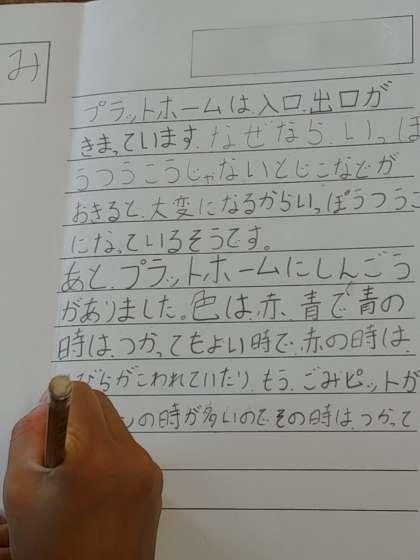 み
プラットホームは、入口、出口が
きまっています。なぜなら、いっぽ
うつうこうじゃないとじこなどが
おきると、大変になるからいっぽうつうこ
になっているそうです。
あと、プラットホームにしんごう
がありました。色は、赤、青で、青の
時は、つかってもよい時で、赤の時は、
びらがこわれていたり、もう、ごみピットが
の時が多いのでその時は、つかって